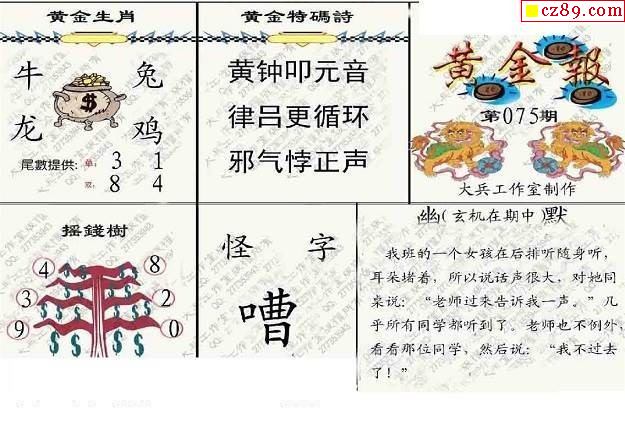 cz89.com
黄金生肖
牛 兔
龙 鸡
尾數提供: 单: 3 1
双: 8 4
黄金特碼詩
黄钟叩元音
律吕更循环
邪气悖正声
黄金報
第075期
大兵工作室制作
摇錢樹
4 8
3 2
9 0
怪 字
嘈
幽(玄机在期中)默
我班的一个女孩在后排听随身听,
耳朵堵着,所以说话声很大,对她同
桌说:“老师过来告诉我一声。”几
乎所有同学都听到了。老师也不例外,
看看那位同学,然后说:“我不过去
了!”